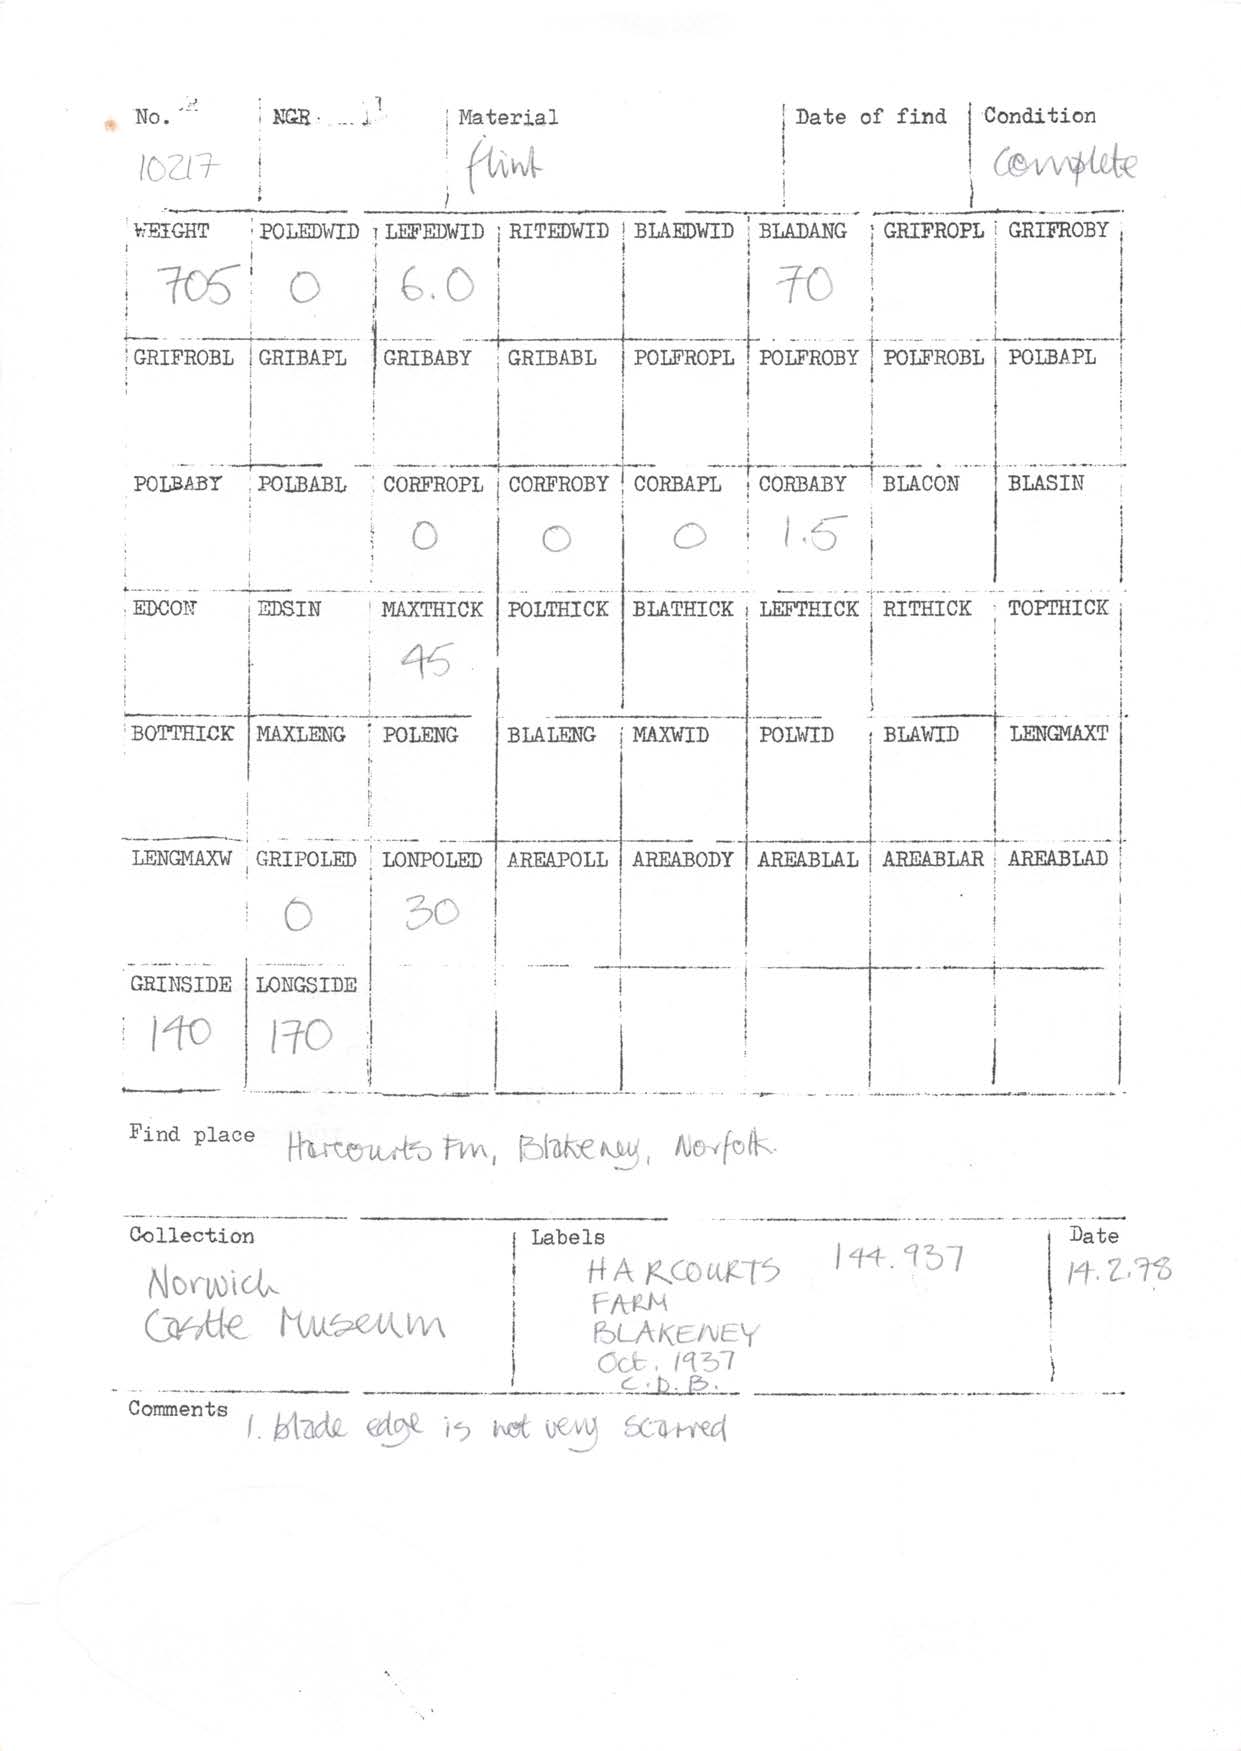 No. NGR Material Date of find Condition
10217 flint complete
WEIGHT POLEDWID LEFEDWID RITEDWID BLAEDWID BLADANG GRIFROPL GRIFROBY
705 0 6.0 70
GRIFROBL GRIBAPL GRIBABY GRIBABL POLFROPL POLFROBY POLFROBL POLBAPL
POLBABY POLBABL CORFROPL CORFROBY CORBAPL CORBABY BLACON BLASIN
0 0 0 1.5
EDCON EDSIN MAXTHICK POLTHICK BLATHICK LEFTHICK RITHICK TOPTHICK
45
BOTTHICK MAXLENG POLENG BLALENG MAXWID POLWID BLAWID LENGMAXT
LENGMAXW GRIPOLED LONPOLED AREAPOLL AREABODY AREABLAL AREABLAR AREABLAD
0 30
GRINSIDE LONGSIDE
140 170
Find place Harcourts Fm, Blakeney, Norfolk.
Collection Labels Date
Norwich
Castle Museum
HARCOURTS 144.937
FARM
BLAKENEY
Oct. 1937
C.D.B.
14.2.78
Comments 1. blade edge is not very scarred